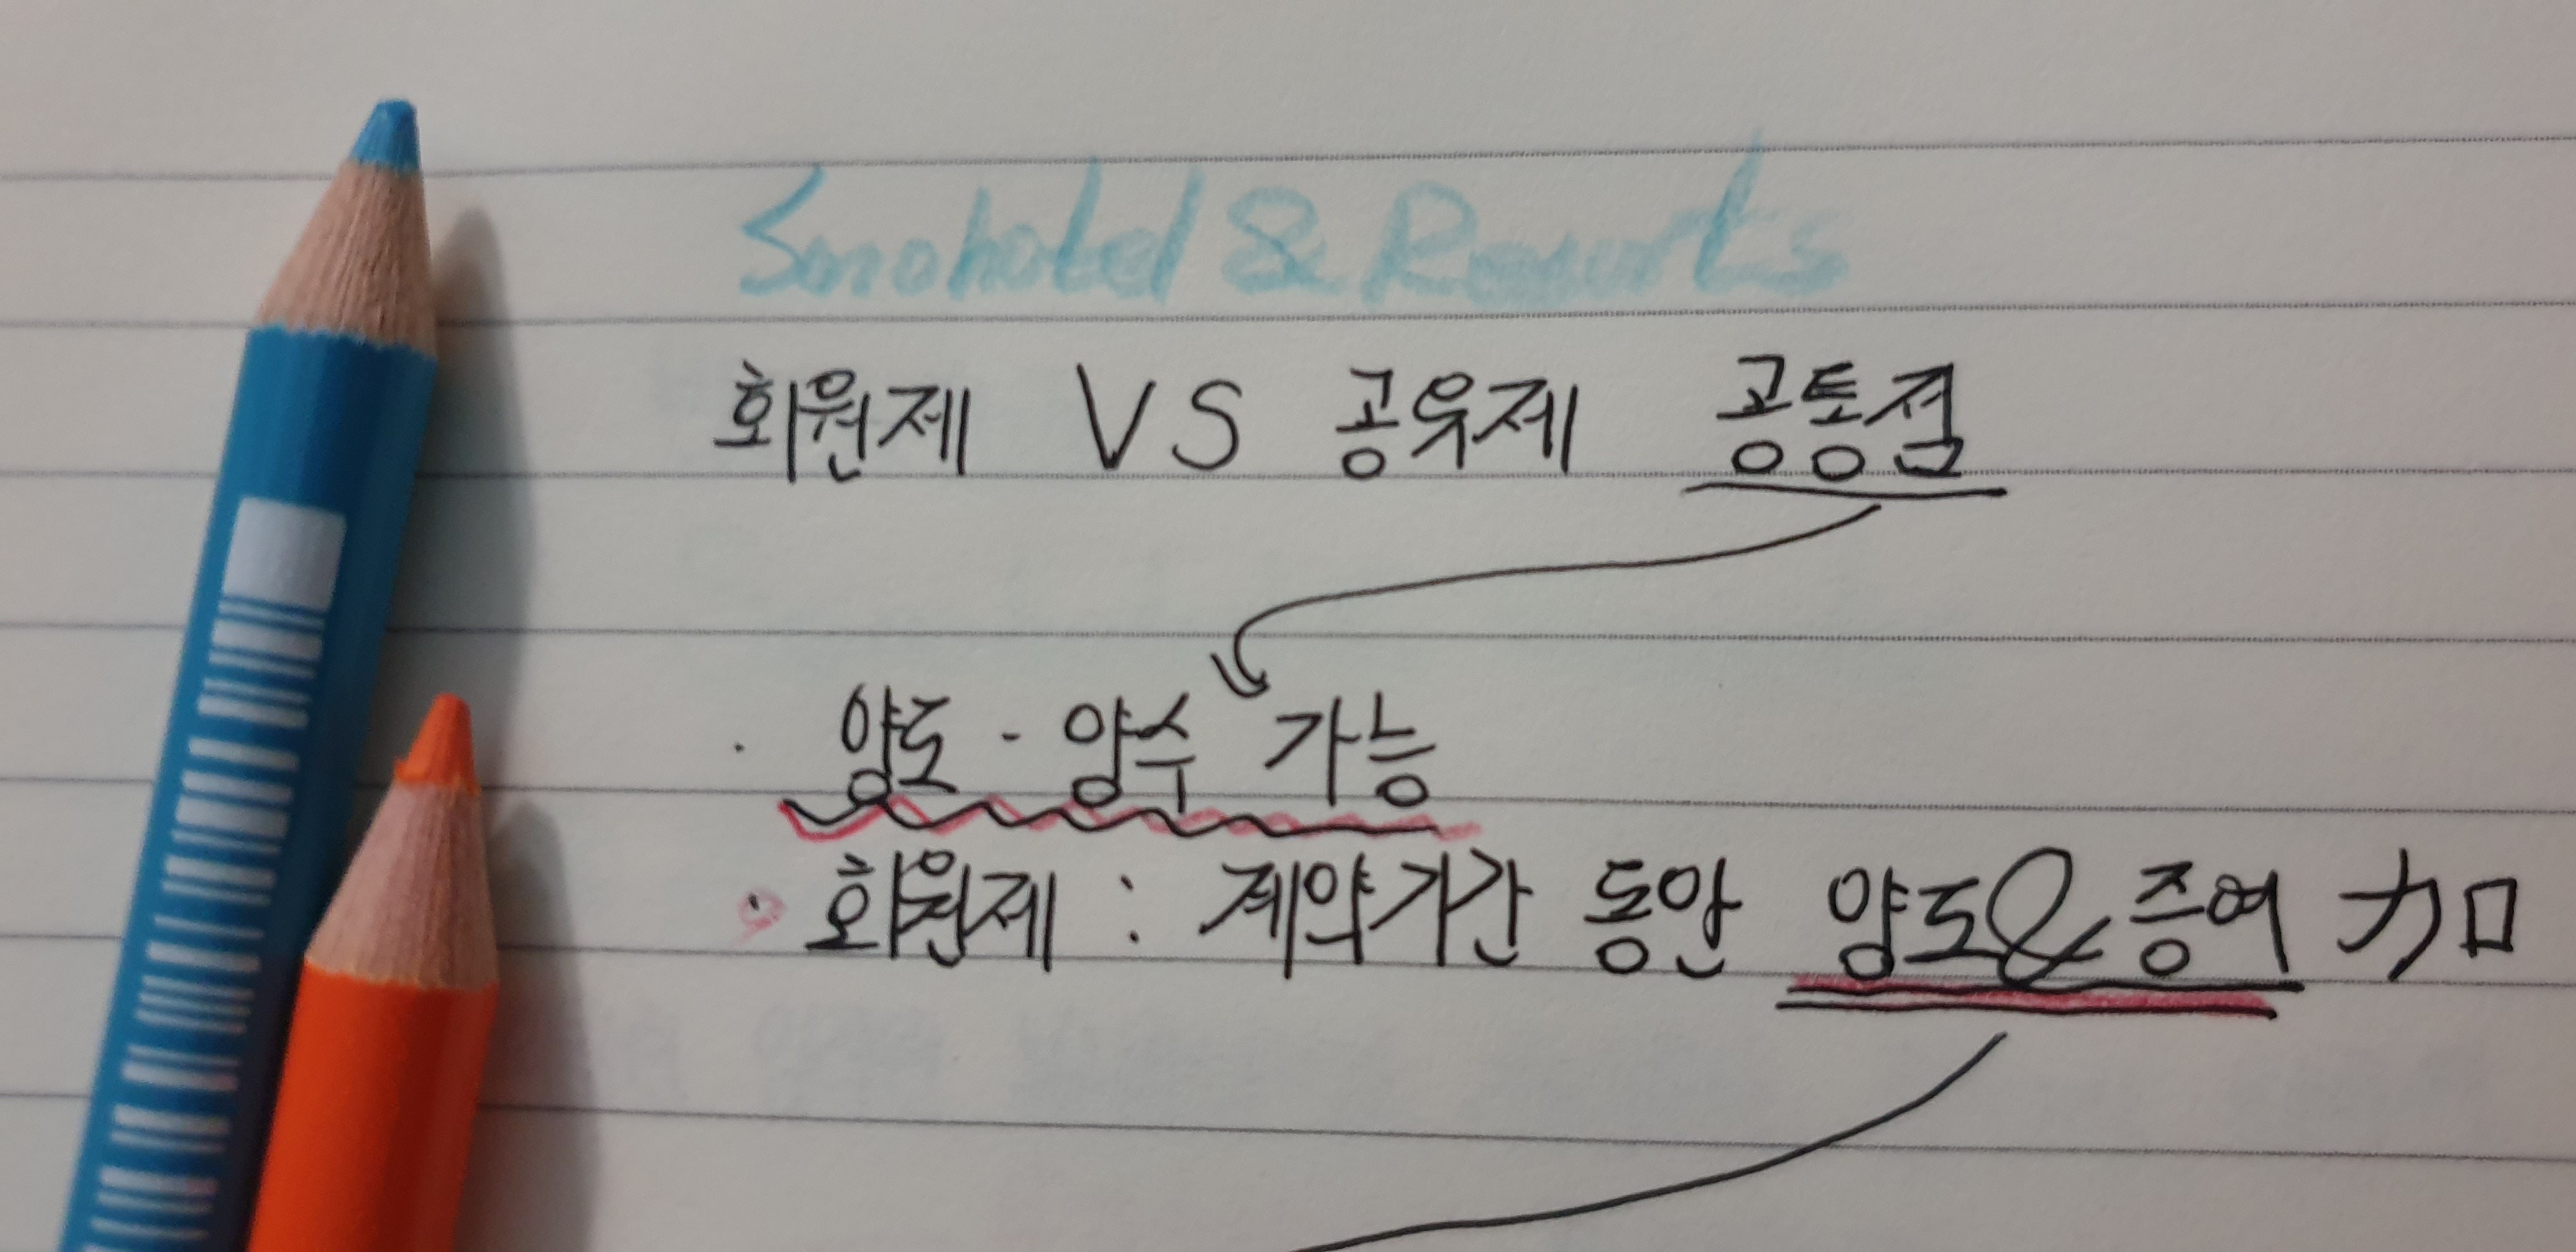 Sonohotel & Resorts
회원제 VS 공유제 공통점
· 양도 - 양수 가능
· 회원제 : 계약기간 동안 양도&증여 可